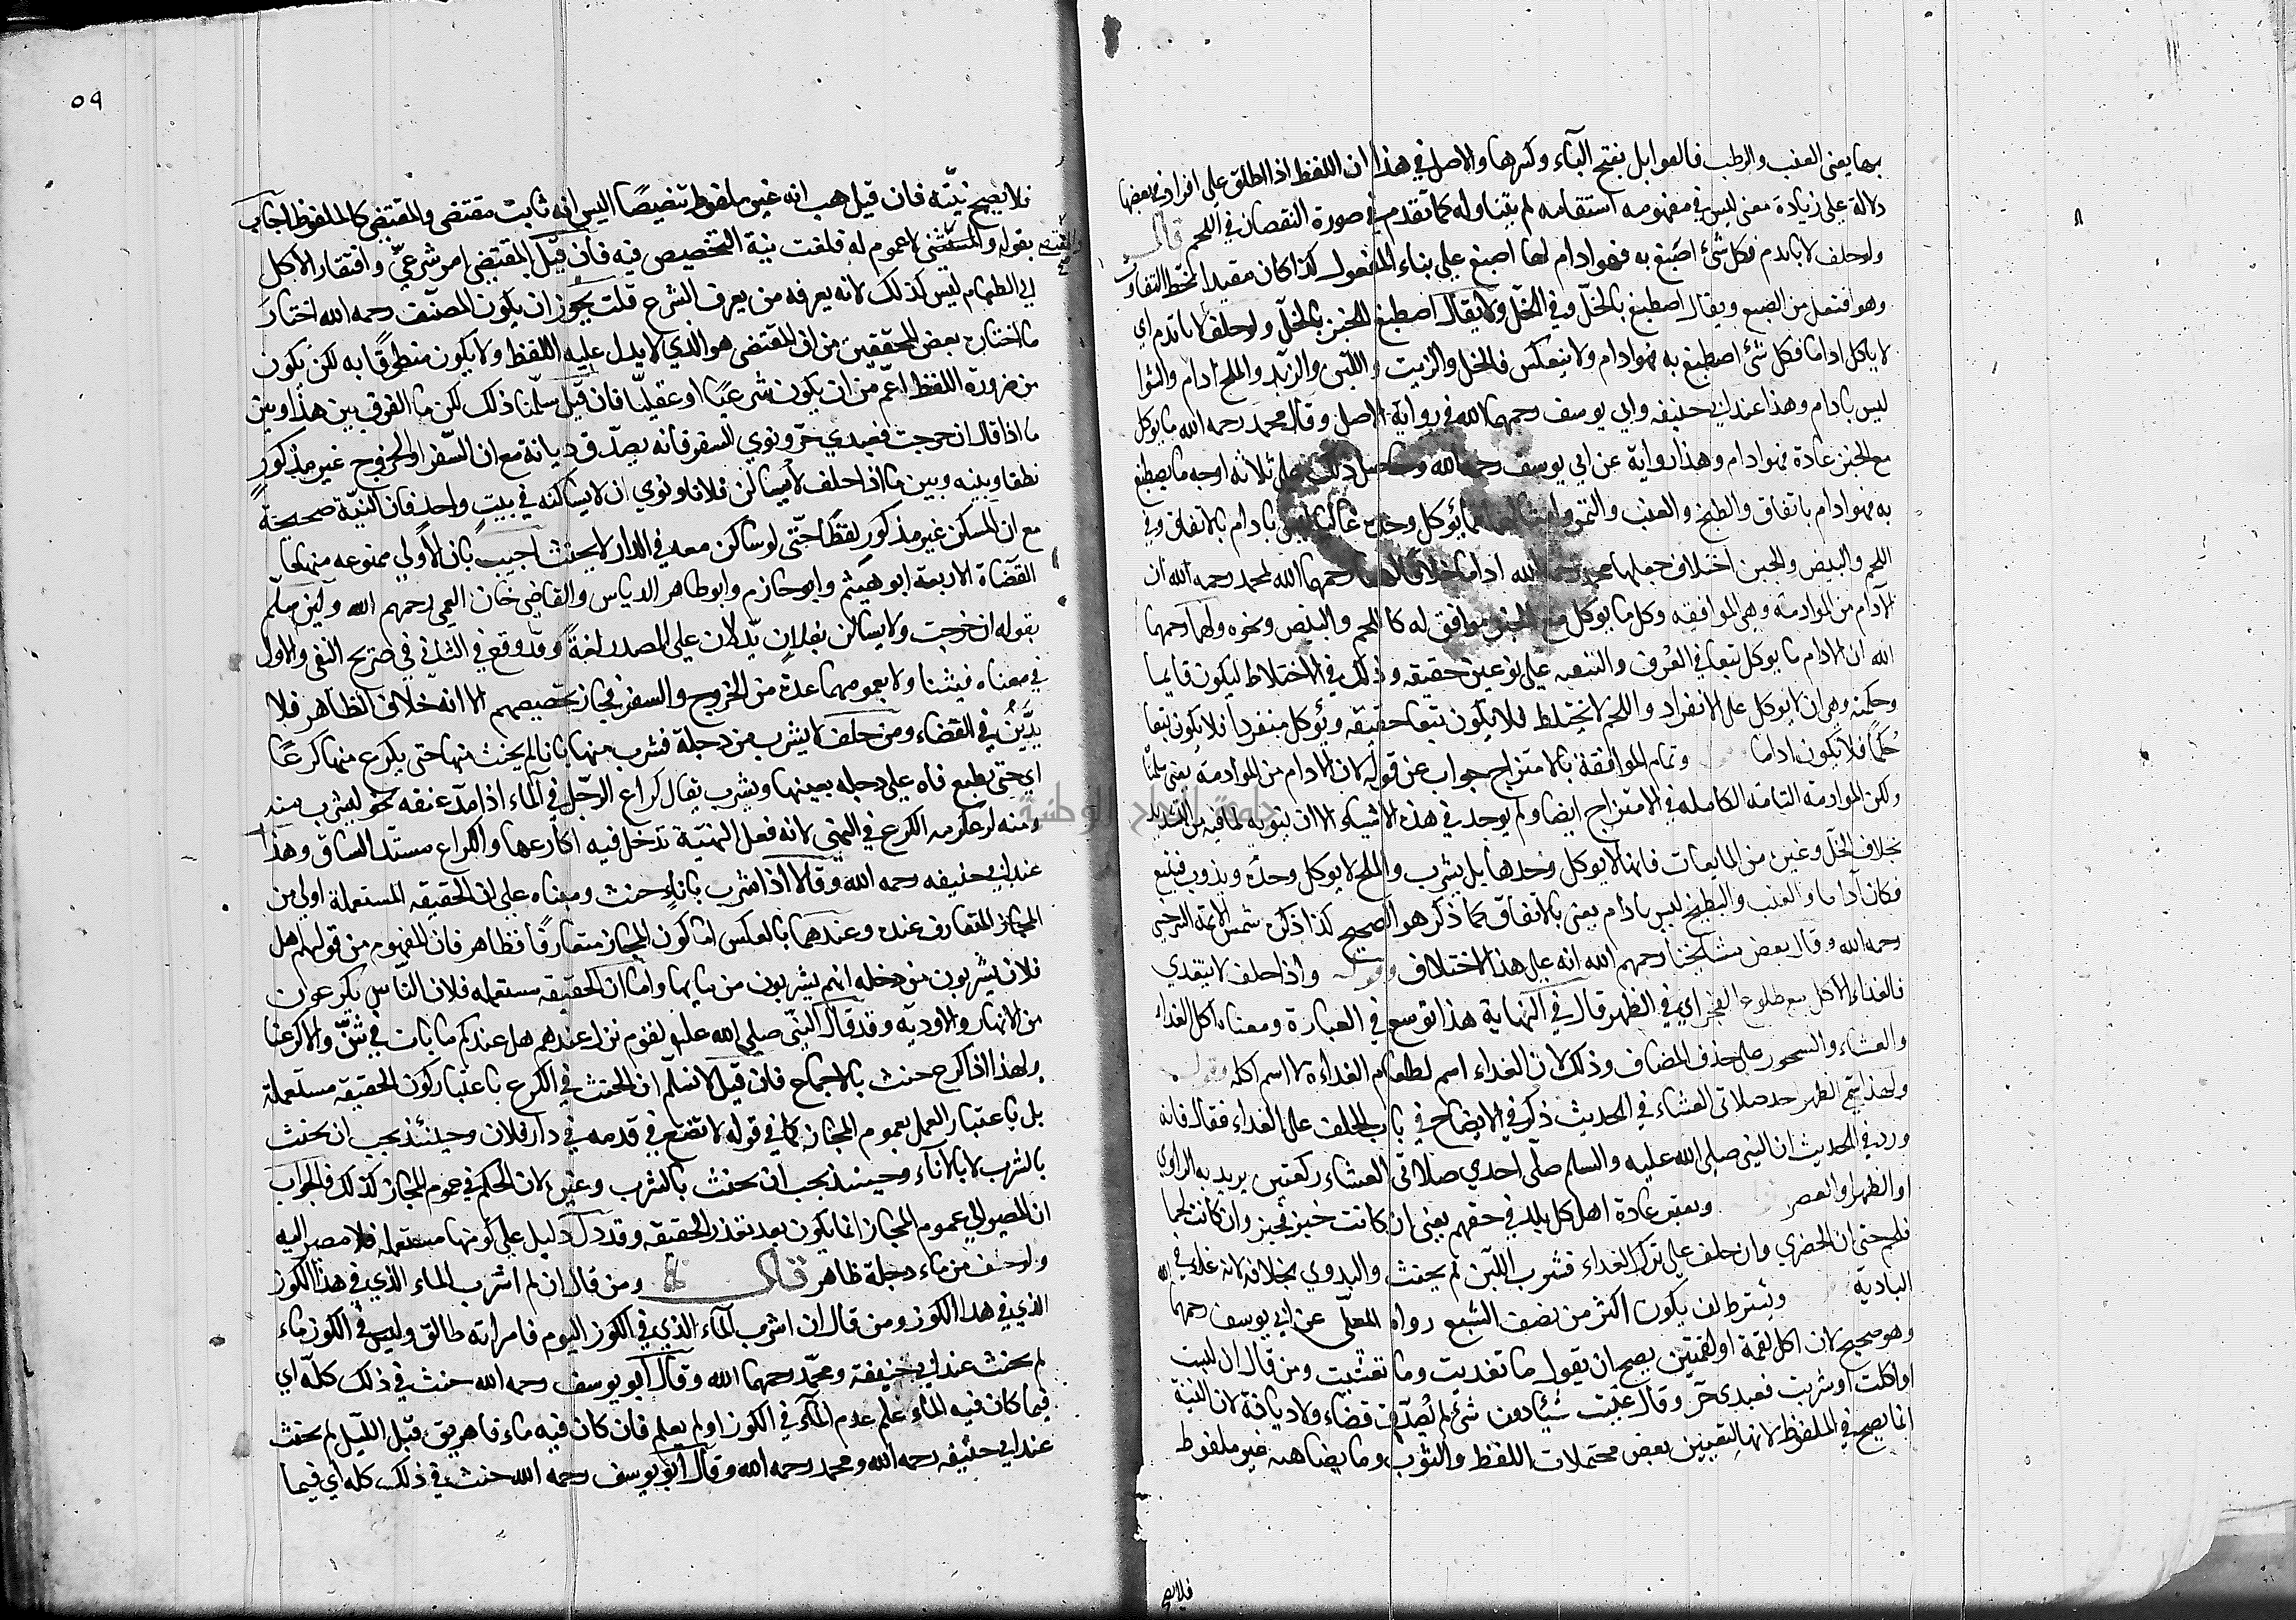 بها يعني العنب والرطب فالعوابل بفتح الباء وكسرها والاصل في هذا ان اللفظ اذا اطلق على افراد في بعضها
دلالة على زيادة معنى ليس في مفهومه استقامه لم يتناوله كما تقدم في صورة النقصان في اللحم قال
ولو حلف لا ياتدم فكل شئ اصبغ به فهو ادام لها اصبغ على بناء المفعول كذا كان مقيدا بخط الثقات
وهو افتعل من الصبغ ويقال اصطبغ بالخل وفي الخل ولا يقال اصطبغ الخبز بالخل ولو حلف لا ياتدم اي
لا ياكل اداما فكل شئ اصطبغ به فهو ادام ولا ينعكس فالخل والزيت واللبن والزبد والملح ادام والشوا
ليس بادام وهذا عند ابي حنيفه وابي يوسف رحمهما الله في رواية الاصل وقال محمد رحمه الله ما يوكل
مع الخبز عادة فهو ادام وهذا رواية عن ابي يوسف رحمه الله وحاصل ذلك على ثلاثه اوجه ما يصطبغ
به فهو ادام باتفاق والطبخ والعنب والتمر وامثالها مما يؤكل وحده غالبا ليس بادام بالاتفاق وفي
اللحم والبيض والجبن اختلاف جعلها محمد رحمه الله اداما خلافا لهما رحمهما الله لمحمد رحمه الله ان
الادام من الموادمه وهي الموافقه وكل ما يوكل مع الخبز موافق له كاللحم والبيض ونحوه ولهما رحمهما
الله ان الادام ما يوكل تبعا في العرف والتبعيه على نوعين حقيقه وذلك في الاختلاط ليكون قايما
وحكميه وهي ان لا يوكل على الانفراد واللحم لا يختلط فلا يكون تبعا حقيقه ويؤكل منفردا فلا يكون تبعا
حكما فلا يكون اداما وتمام الموافقة بالامتزاج جواب عن قوله لان الادام من الموادمة يعني سلمنا
ولكن الموادمة التامة الكامله في الامتزاج ايضا ولم يوجد في هذه الاشياء الا ان ينويه لما فيه من التشديد
بخلاف الخل وغيره من المايعات فانها لا يوكل وحدها بل يشرب والملح لا يوكل وحده ويذوب فيتبع
فكان اداما والعنب والبطيخ ليس بادام يعني بالاتفاق كما ذكر هو الصحيح كذا ذكره شمس الايمه السرخسي
رحمه الله وقال بعض مشايخنا رحمهم الله انه على هذا الاختلاف واذا حلف لا يتغدي
فالغداء الاكل مع طلوع الفجر اي في الظهر قال في النهاية هذا توسع في العبارة ومعناه اكل الغداء
والعشاء والسحور على حذف المضاف وذلك لان الغداء اسم لطعام الغداء لا اسم اكله
ولهذا يتم الظهر حد صلاتي العشاء في الحديث ذكر في الايضاح في باب الحلف على الغداء فقال فانه
ورد في الحديث ان النبي صلى الله عليه والسلم صلى احدي صلاتي العشاء ركعتين يريد به الراوي
او الظهر او العصر ويعتبر عادة اهل كل بلد في حقهم يعني ان كانت خبز فخبز وان كانت لحما
فلحم حتى ان الحضري وان حلف على ترك الغداء فشرب اللبن لم يحنث والبدوي بخلافه لانه غداء في
البادية ويشترط ان يكون اكثر من نصف الشبع رواه المعلى عن ابي يوسف رحمهما الله
وهو صحيح لان اكل لقمة او لقمتين يصح ان يقول ما تغديت وما تعشيت ومن قال ان لبست
او اكلت او شربت فعبدي حر وقال عنيت شيئا دون شئ لم يصدق قضاء ولا ديانة لان النية
انما يصح في الملفوظ لانها لتعيين بعض محتملات اللفظ والثوب وما يضاهيه غير ملفوظ
فلا يصح
٥٩
فلا يصح نيته فان قيل هب انه غير ملفوظ تنصيصا اليس انه ثابت مقتضى والمقتضى كالملفوظ اجاب
بقوله والمقتضى لا عموم له فلغت نية التخصيص فيه فان قيل المقتضى امر شرعي وافتقار الاكل
الى الطعام ليس كذلك لانه يعرفه من يعرف الشرع قلت يجوز ان يكون المصنف رحمه الله اختار
ما اختاره بعض المحققين من ان المقتضى هو الذي لا يدل عليه اللفظ ولا يكون منطوقا به لكن يكون
من ضرورة اللفظ اعم من ان يكون شرعيا او عقليا فان قيل سلمنا ذلك لكن ما الفرق بين هذا وبين
ما اذا قال ان خرجت فعبدي حر ونوي السفر فانه يصدق ديانة مع ان السفر او الخروج غير مذكور
نطقا وبينه وبين ما اذا حلف لا يساكن فلانا ونوي ان لا يساكنه في بيت واحد فان النية صحيحة
مع ان المسكن غير مذكور لفظا حتى لو ساكن معه في الدار لا يحنث اجيب بان الاولى ممنوعه منعها
القضاة الاربعة ابو هيثم وابو حازم وابو طاهر الدباس والقاضي خان القمي رحمهم الله ولئن سلم
بقوله ان خرجت ولا يساكن بفلان يدلان على المصدر لغة وقد وقع في الثاني في صريح النفي والاول
في معناه فيشنا ولا بعمومهما عدة من الخروج والسفر فجاز تخصيصهم الا انه خلاف الظاهر فلا
يدين في القضاء ومن حلف لا يشرب من دجلة فشرب منها باناء لم يحنث منها حتى يكرع منها كرعا
اي حتى يضع فاه على دجله بعينها ويشرب يقال كراع الرجل في الماء اذا مد عنقه نحو ليشرب منه
ومنه لو عكرمه الكرع في النهي لانه فعل البهيمة تدخل فيه اكارعها والكراع مستدق الساق وهذا
عند ابي حنيفه رحمه الله وقالا اذا شرب باناء حنث ومبناه على ان الحقيقه المستعملة اولى من
المجاز المتعارف عنده وعندهما بالعكس اما كون المجاز متعارفا فظاهر فان المفهوم من قولهم اهل
فلان يشربون من دجله انهم يشربون من مايها واما ان الحقيقه مستعمله فلان الناس يكرعون
من الانهار والاوديه وقد قال النبي صلى الله عليه لقوم نزل عندهم هل عندكم ما بات في شن والا كرعنا
ولهذا اذا كرع حنث بالاجماع فان قيل لا نسلم ان الحنث في الكرع باعتبار كون الحقيقه مستعملة
بل باعتبار العمل بعموم المجاز كما في قوله لا تضع في قدمه في دار فلان وحينئذ يجب ان يحنث
بالشرب لا بالاناء وحينئذ يجب ان يحنث بالشرب وغيره لان الحكم في عموم المجاز كذلك فالجواب
ان المصير الى عموم المجاز انما يكون بعد تعذر الحقيقه وقد دل دليل على كونها مستعمله فلا مصير اليه
ولو حلف من ماء دجلة ظاهر قال ومن قال ان لم اشرب الماء الذي في هذا الكوز
الذي في هذا الكوز ومن قال ان اشرب الماء الذي في الكوز اليوم فامراته طالق وليس في الكوز ماء
لم يحنث عند ابي حنيفة ومحمد رحمهما الله وقال ابو يوسف رحمه الله حنث في ذلك كله اي
فيما كان فيه الماء علم عدم الماء في الكوز او لم يعلم فان كان فيه ماء فاهريق قبل الليل لم يحنث
عند ابي حنيفه رحمه الله ومحمد رحمه الله وقال ابو يوسف رحمه الله حنث في ذلك كله اي فيما